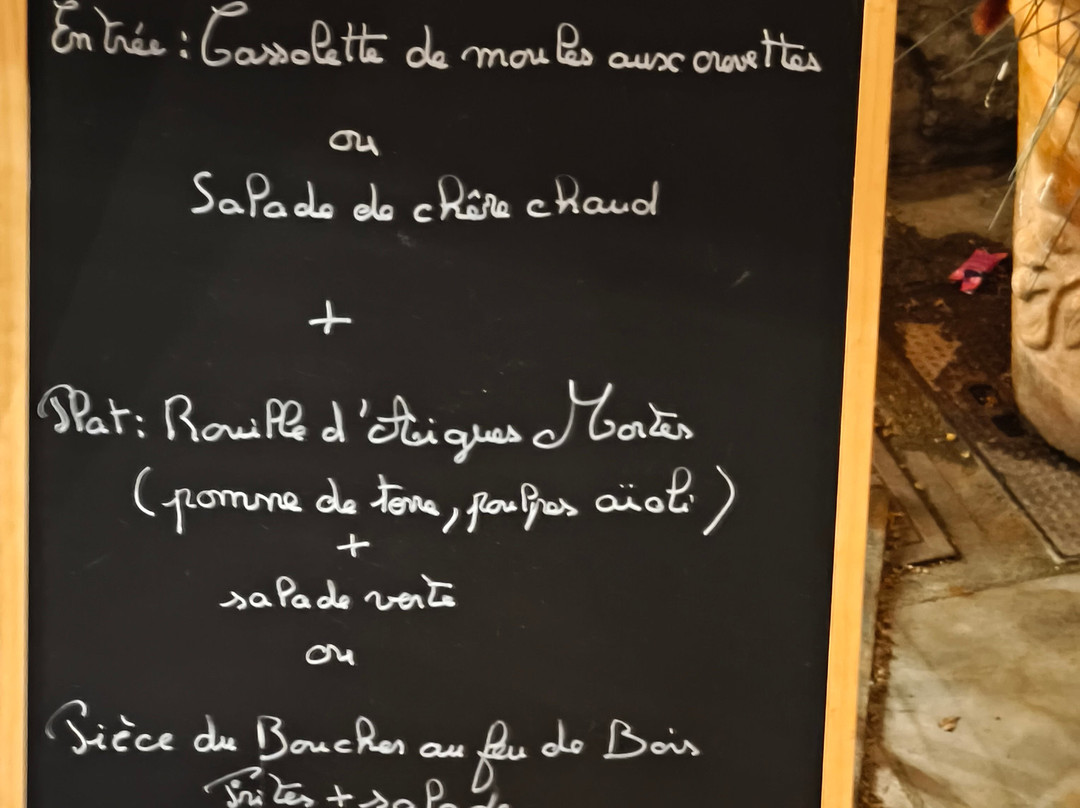 Entrée : Cassolette de moules aux crevettes
ou
Salade de chêvre chaud
+
Plat : Rouille d'Aigues Mortes
(pomme de terre, poulpes aïoli)
+
salade verte
ou
Pièce du Boucher au feu de Bois
Frites + salade